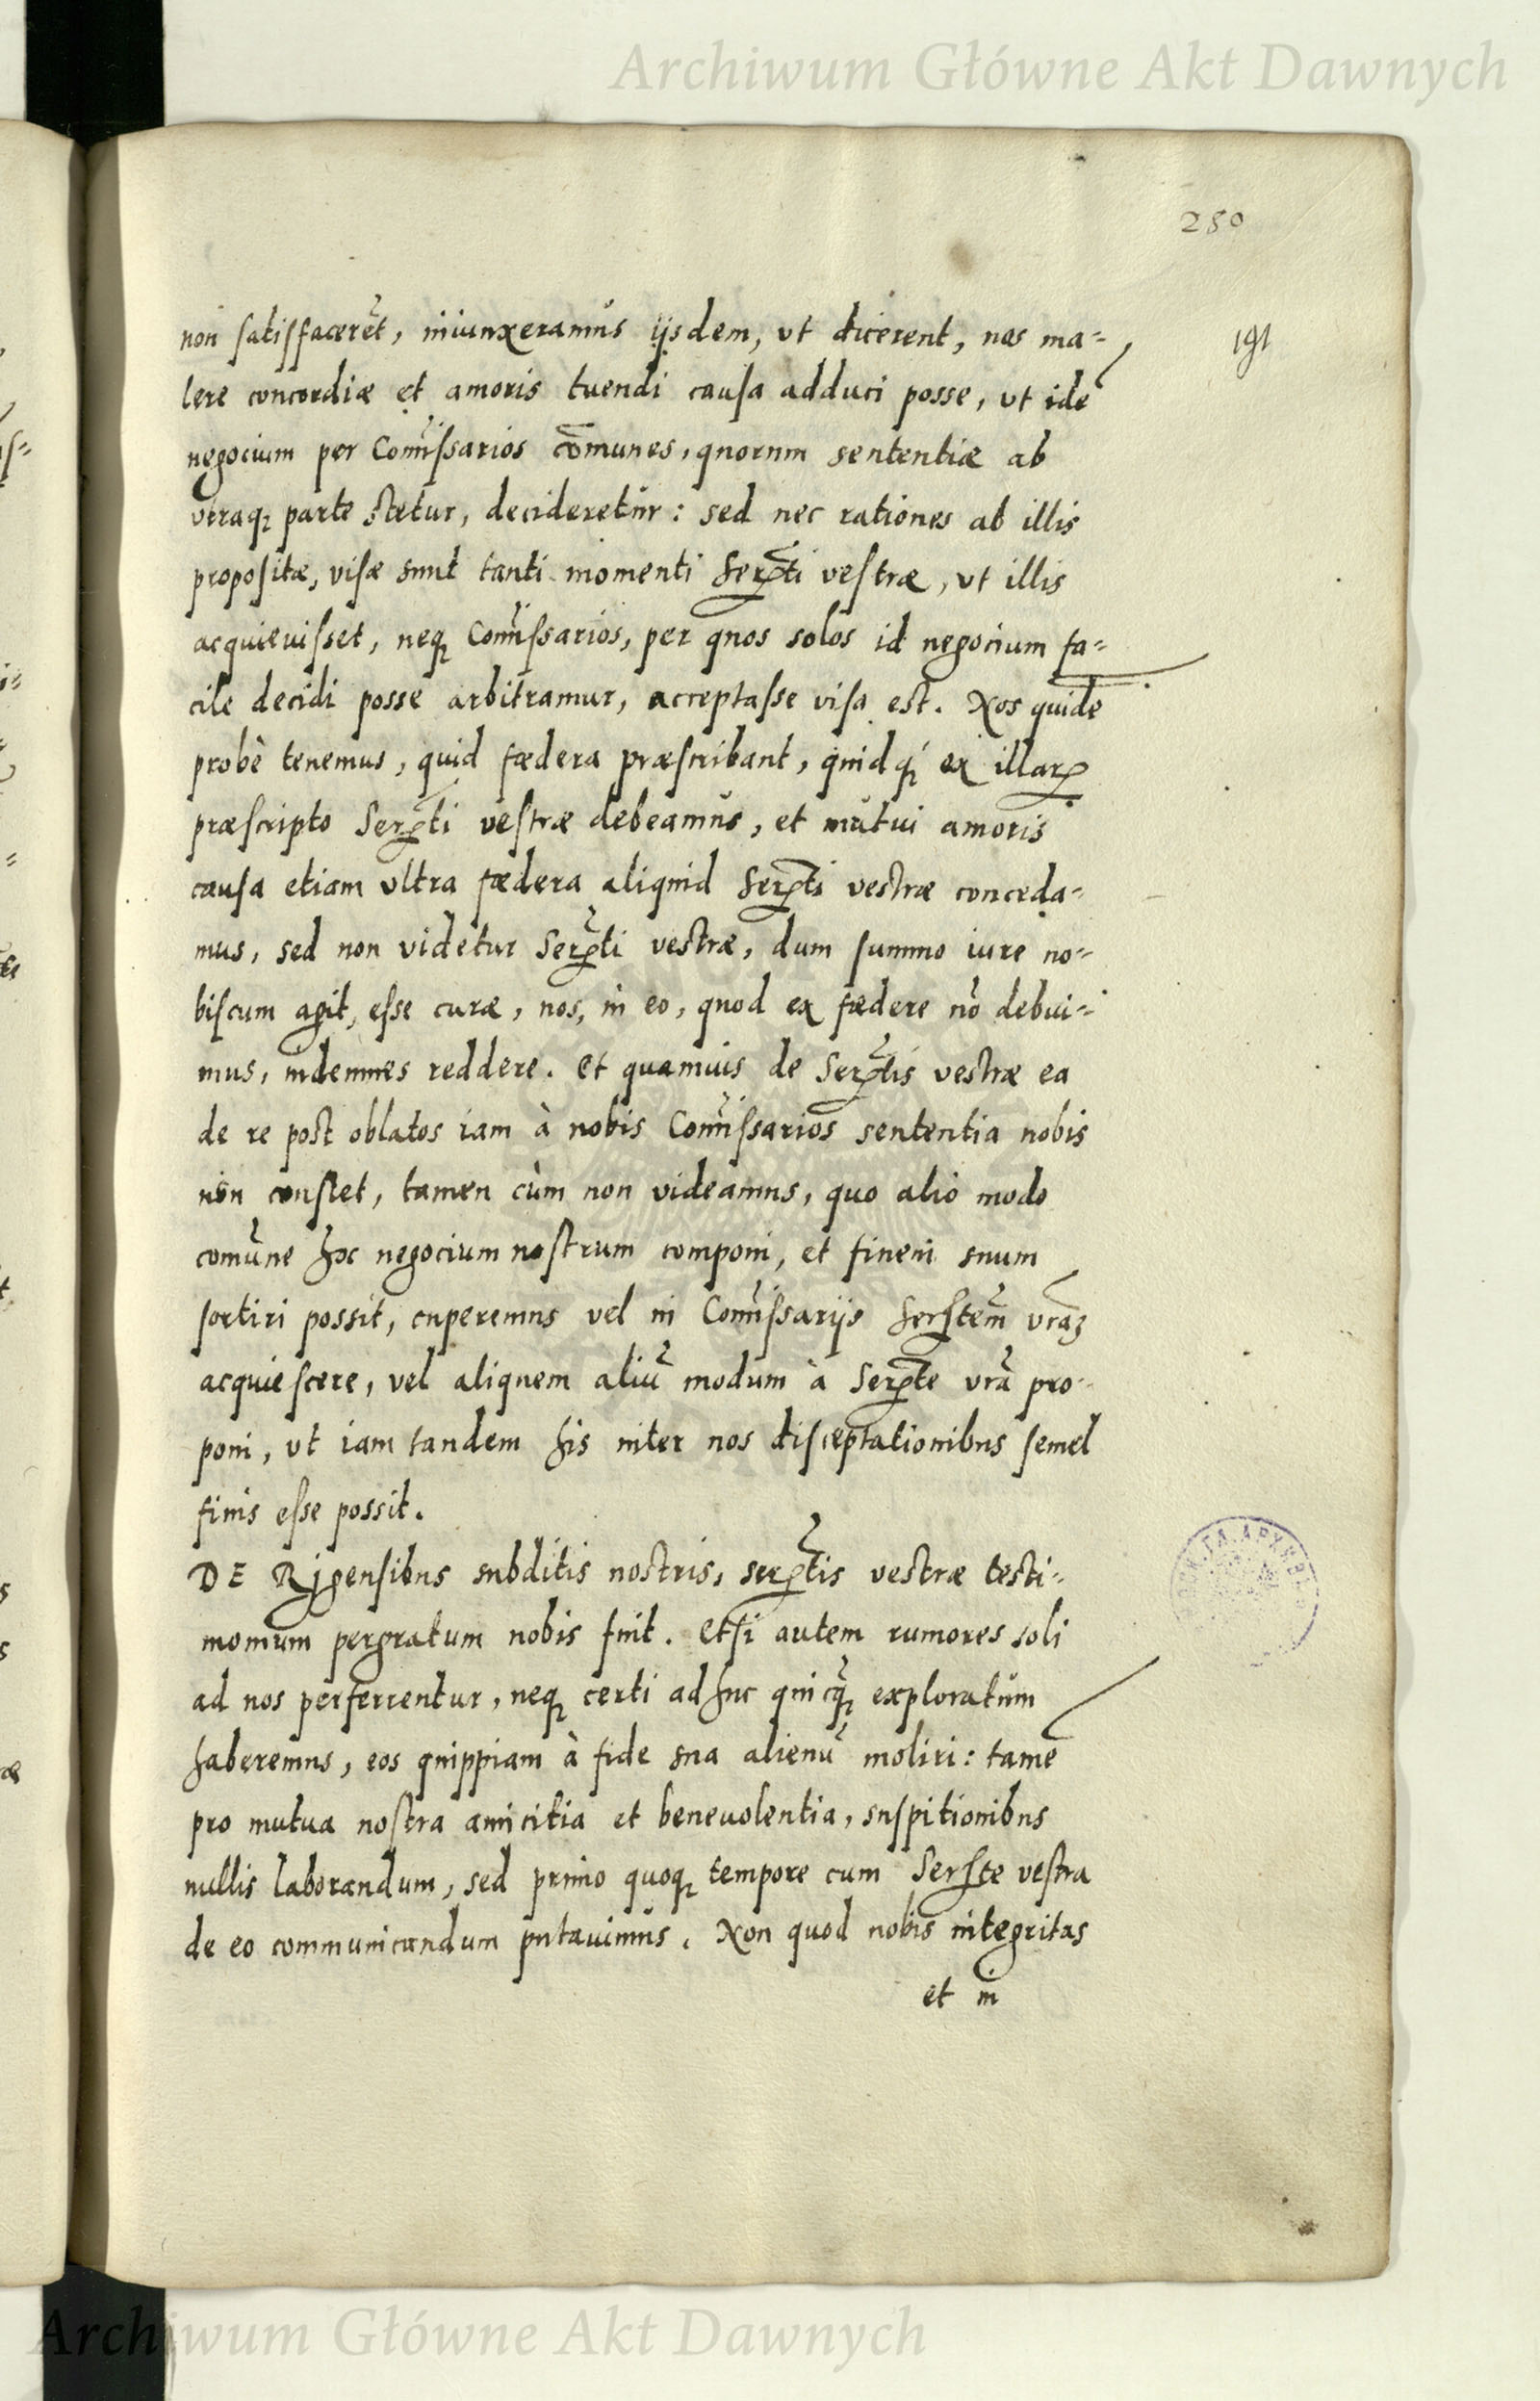 Archiwum Główne Akt Dawnych
280
191
non satisfacerēt, iniunxeramus ijsdem, ut dicerent, nos ma-
lere concordiæ et amoris tuendi causa adduci posse, ut idē
negocium per Com̃issarios cōmunes, quorum sententiæ ab
utraqꝫ parte stetur, decideretur: sed nec rationes ab illis
propositæ, visæ sunt tanti momenti Serꝑti vestræ, ut illis
acquievisset, neqꝫ Com̃issarios, per quos solos id negocium fa-
cile decidi posse arbitramur, acceptasse visa est. Nos quidē
probè tenemus, quid fœdera præscribant, quidqꝫ ex illarꝝ
præscripto Serꝑti vestræ debeamus, et mutui amoris
causa etiam ultra fœdera aliquid Serꝑti vestræ conceda-
mus, sed non videtur Serꝑti vestræ, dum summo iure no-
biscum agit, esse curæ, nos, in eo, quod ex fœdere nō debui-
mus, indemnes reddere. Et quamuis de Serꝑtis vestræ ea
de re post oblatos iam à nobis Com̃issarios sententia nobis
non constet, tamen cùm non videamus, quo alio modo
comũne hoc negocium nostrum componi, et finem suum
sortiri possit, cuperemus vel in Com̃issarijs Serꝑtem̃ vrãꝫ
acquiescere, vel aliquem aliũ modum à Serꝑte vrã pro-
poni, ut iam tandem his inter nos disceptationibus semel
finis esse possit.
DE Rigensibus subditis nostris, serꝑtis vestræ testi-
monium pergratum nobis fuit. Etsi autem rumores soli
ad nos perferrentur, neqꝫ certi adhuc quicqꝫ̃ exploratum
haberemus, eos quippiam à fide sua alienũ moliri: tamē
pro mutua nostra amicitia et beneuolentia, suspitionibus
nullis laborandum, sed primo quoqꝫ tempore cum Serꝑte vestra
de eo communicandum putauimus. Non quod nobis integritas
et in
Archiwum Główne Akt Dawnych